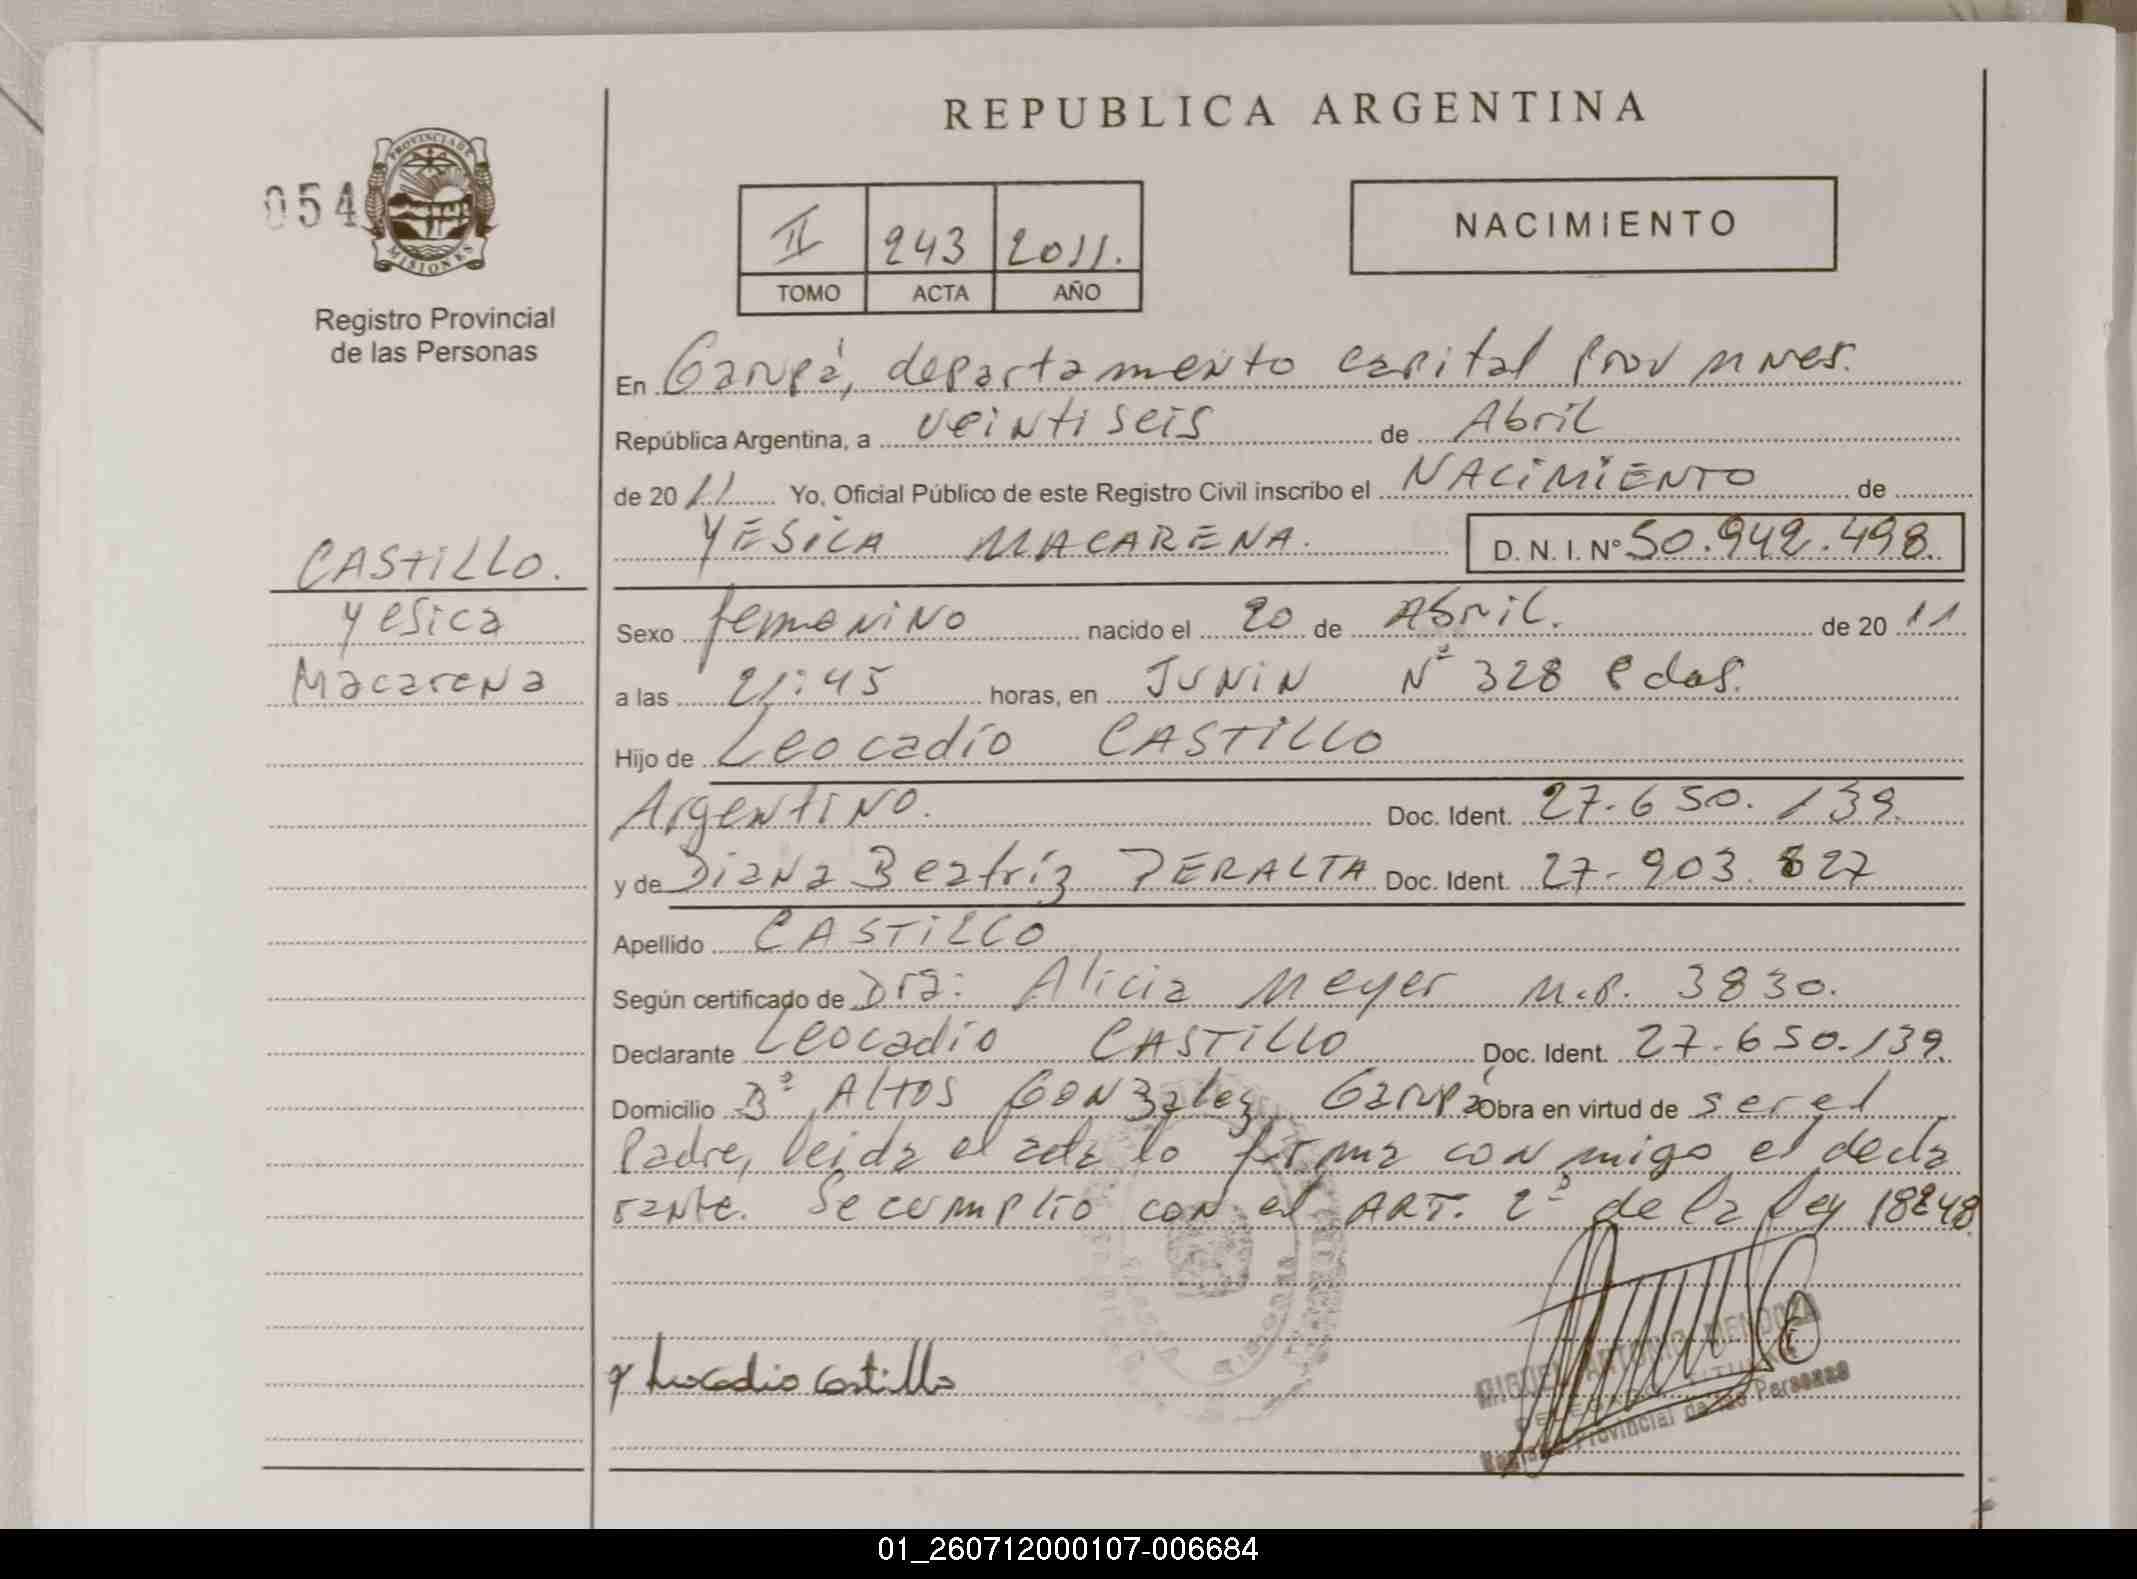 REPUBLICA ARGENTINA
054
PROVINCIA DE
MISIONES
Registro Provincial
de las Personas
II 243 2011.
TOMO ACTA AÑO
NACIMIENTO
En Garupá, departamento capital Prov Mnes.
República Argentina, a veintiseis de Abril
de 2011 Yo, Oficial Público de este Registro Civil inscribo el NACIMIENTO de
YESICA MACARENA. D. N. I. Nº 50.942.498.
CASTILLO.
Yesica
Macarena
Sexo femenino nacido el 20 de Abril. de 2011
a las 21:45 horas, en JUNIN Nº 328 Pdas.
Hijo de Leocadio CASTILLO
Argentino. Doc. Ident. 27.650.139.
y de Diana Beatríz PERALTA Doc. Ident. 27.903.827
Apellido CASTILLO
Según certificado de Dra: Alicia Meyer M.P. 3830.
Declarante Leocadio CASTILLO Doc. Ident. 27.650.139.
Domicilio Bº Altos Gonzalez Garupá Obra en virtud de ser el
Padre, leida el acta lo firma conmigo el decla
rante. Se cumplio con el ART. 2º de la ley 18248.
Leocadio Castillo
MIGUEL ANTONIO MENDOZA
DELEGADO TITULAR
Registro Provincial de las Personas
01_260712000107-006684